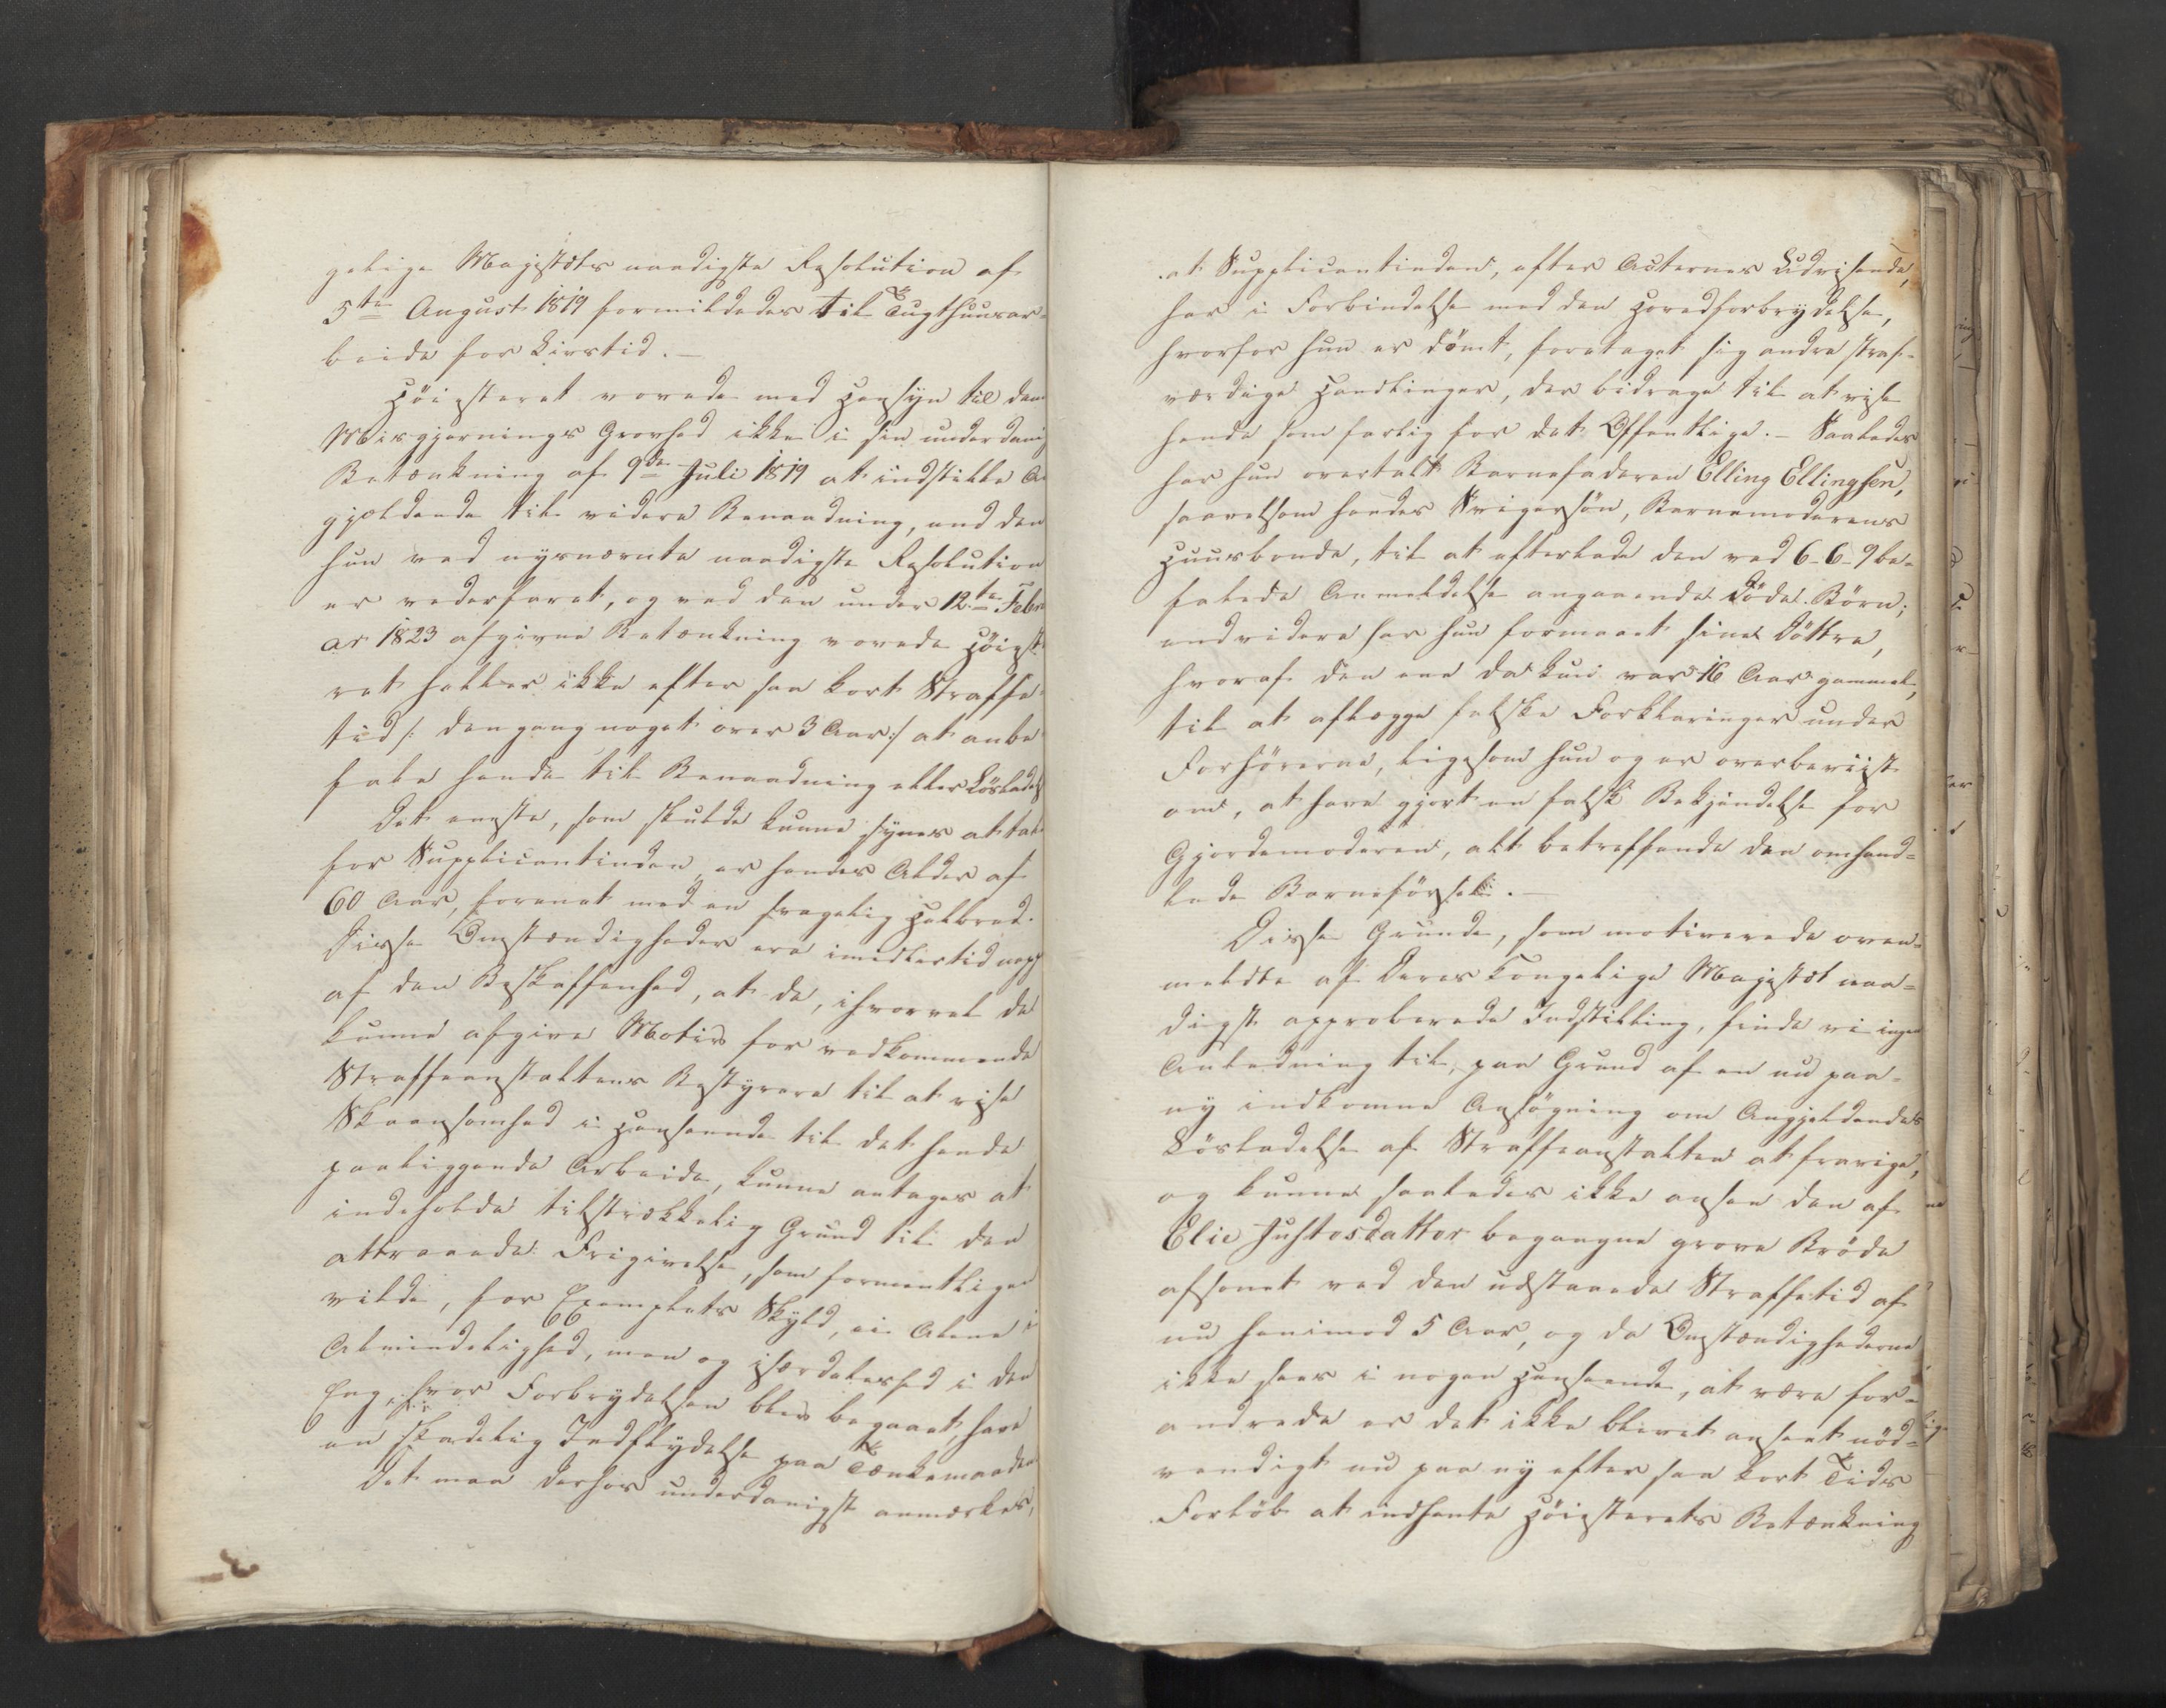 gelige Majestæts naadigste Resolution af
5te August 1819 formildedes til Tugthuusar-
beide for Livstid. —
Höiesteret vovede med Hensyn til den
Misgjernings Grovhed ikke i sin underdanig
Betænkning af 9de Juli 1819 at indstille An
gjeldende til videre Benaadning, end den
hun ved nysnævnte naadigste Resolution
er vederfaret, og ved den under 12te Febru
ar 1823 afgivne Betænkning vovede Höieste
ret heller ikke efter saa kort Straffe-
tid /: dengang noget over 3 Aar :/ at anbe
fale hende til Benaadning eller Löslades
Det eneste, som skulde kunne synes at tale
for Supplicantinden, er hendes Alder af
60 Aar, forenet med en svagelig Helbred.
Disse Omstændigheder ere imidlertid neppe
af den Beskaffenhed, at de, ihvorvel de
kunne afgive Motiv for vedkommende
Straffeanstaltens Bestyrere til at vise
Skaansomhed i Henseende til det hende
paaliggende Arbeide, kunne antages at
indeholde tilstrækkelig Grund til den
attraaede Frigivelse, som formentligen
vilde, for Exemplets Skyld, ei alene i
Almindelighed, men og isærdeleshed i den
Egn, hvor Forbrydelsen blev begaaet, have
en skadelig Indflydelse paa Tænkemaaden
Det maa derhos underdanigst anmærkes,
at Supplicantinden, efter Acternes Udvisende,
har i Forbindelse med den Hovedforbrydelse,
hvorfor hun er dömt, foretaget sig andre straf-
værdige Handlinger, der bidrage til at vise
hende som farlig for det Offentlige. — Saaledes
har hun overtalt Barnefaderen Elling Ellingsen,
saavelsom hendes Svigersön, Barnemoderens
Huusbonde, til at efterlade den ved 6-6-9 be-
falede Anmeldelse angaaende döde Börn;
endvidere har hun formaaet sine Döttre,
hvoraf den ene da kun var 16 Aar gammel,
til at aflægge falske Forklaringer under
Forhörerne, ligesom hun og er overbeviist
om, at have gjort en falsk Bekjendelse for
Gjordemoderen, alt betreffende den omhand-
lede Barnefödsel. —
Disse Grunde, som motiverede oven-
meldte af Deres Kongelige Majestæt naa-
digst approberede Indstilling, finde vi ingen
Anledning til, paa Grund af en nu paa-
ny indkomne Ansögning om Angjeldendes
Lösladelse af Straffeanstalten at fravige,
og kunne saaledes ikke ansee den af
Elie Justosdatter begangne grove Bröde
afsonet ved den udstaaede Straffetid af
nu henimod 5 Aar, og da Omstændighederne
ikke sees i nogen Henseende, at være for-
andrede er det ikke blevet anseet nöd-
vendigt nu paa ny efter saa kort Tids
Forlöb at indhente Höiesterets Betænkning